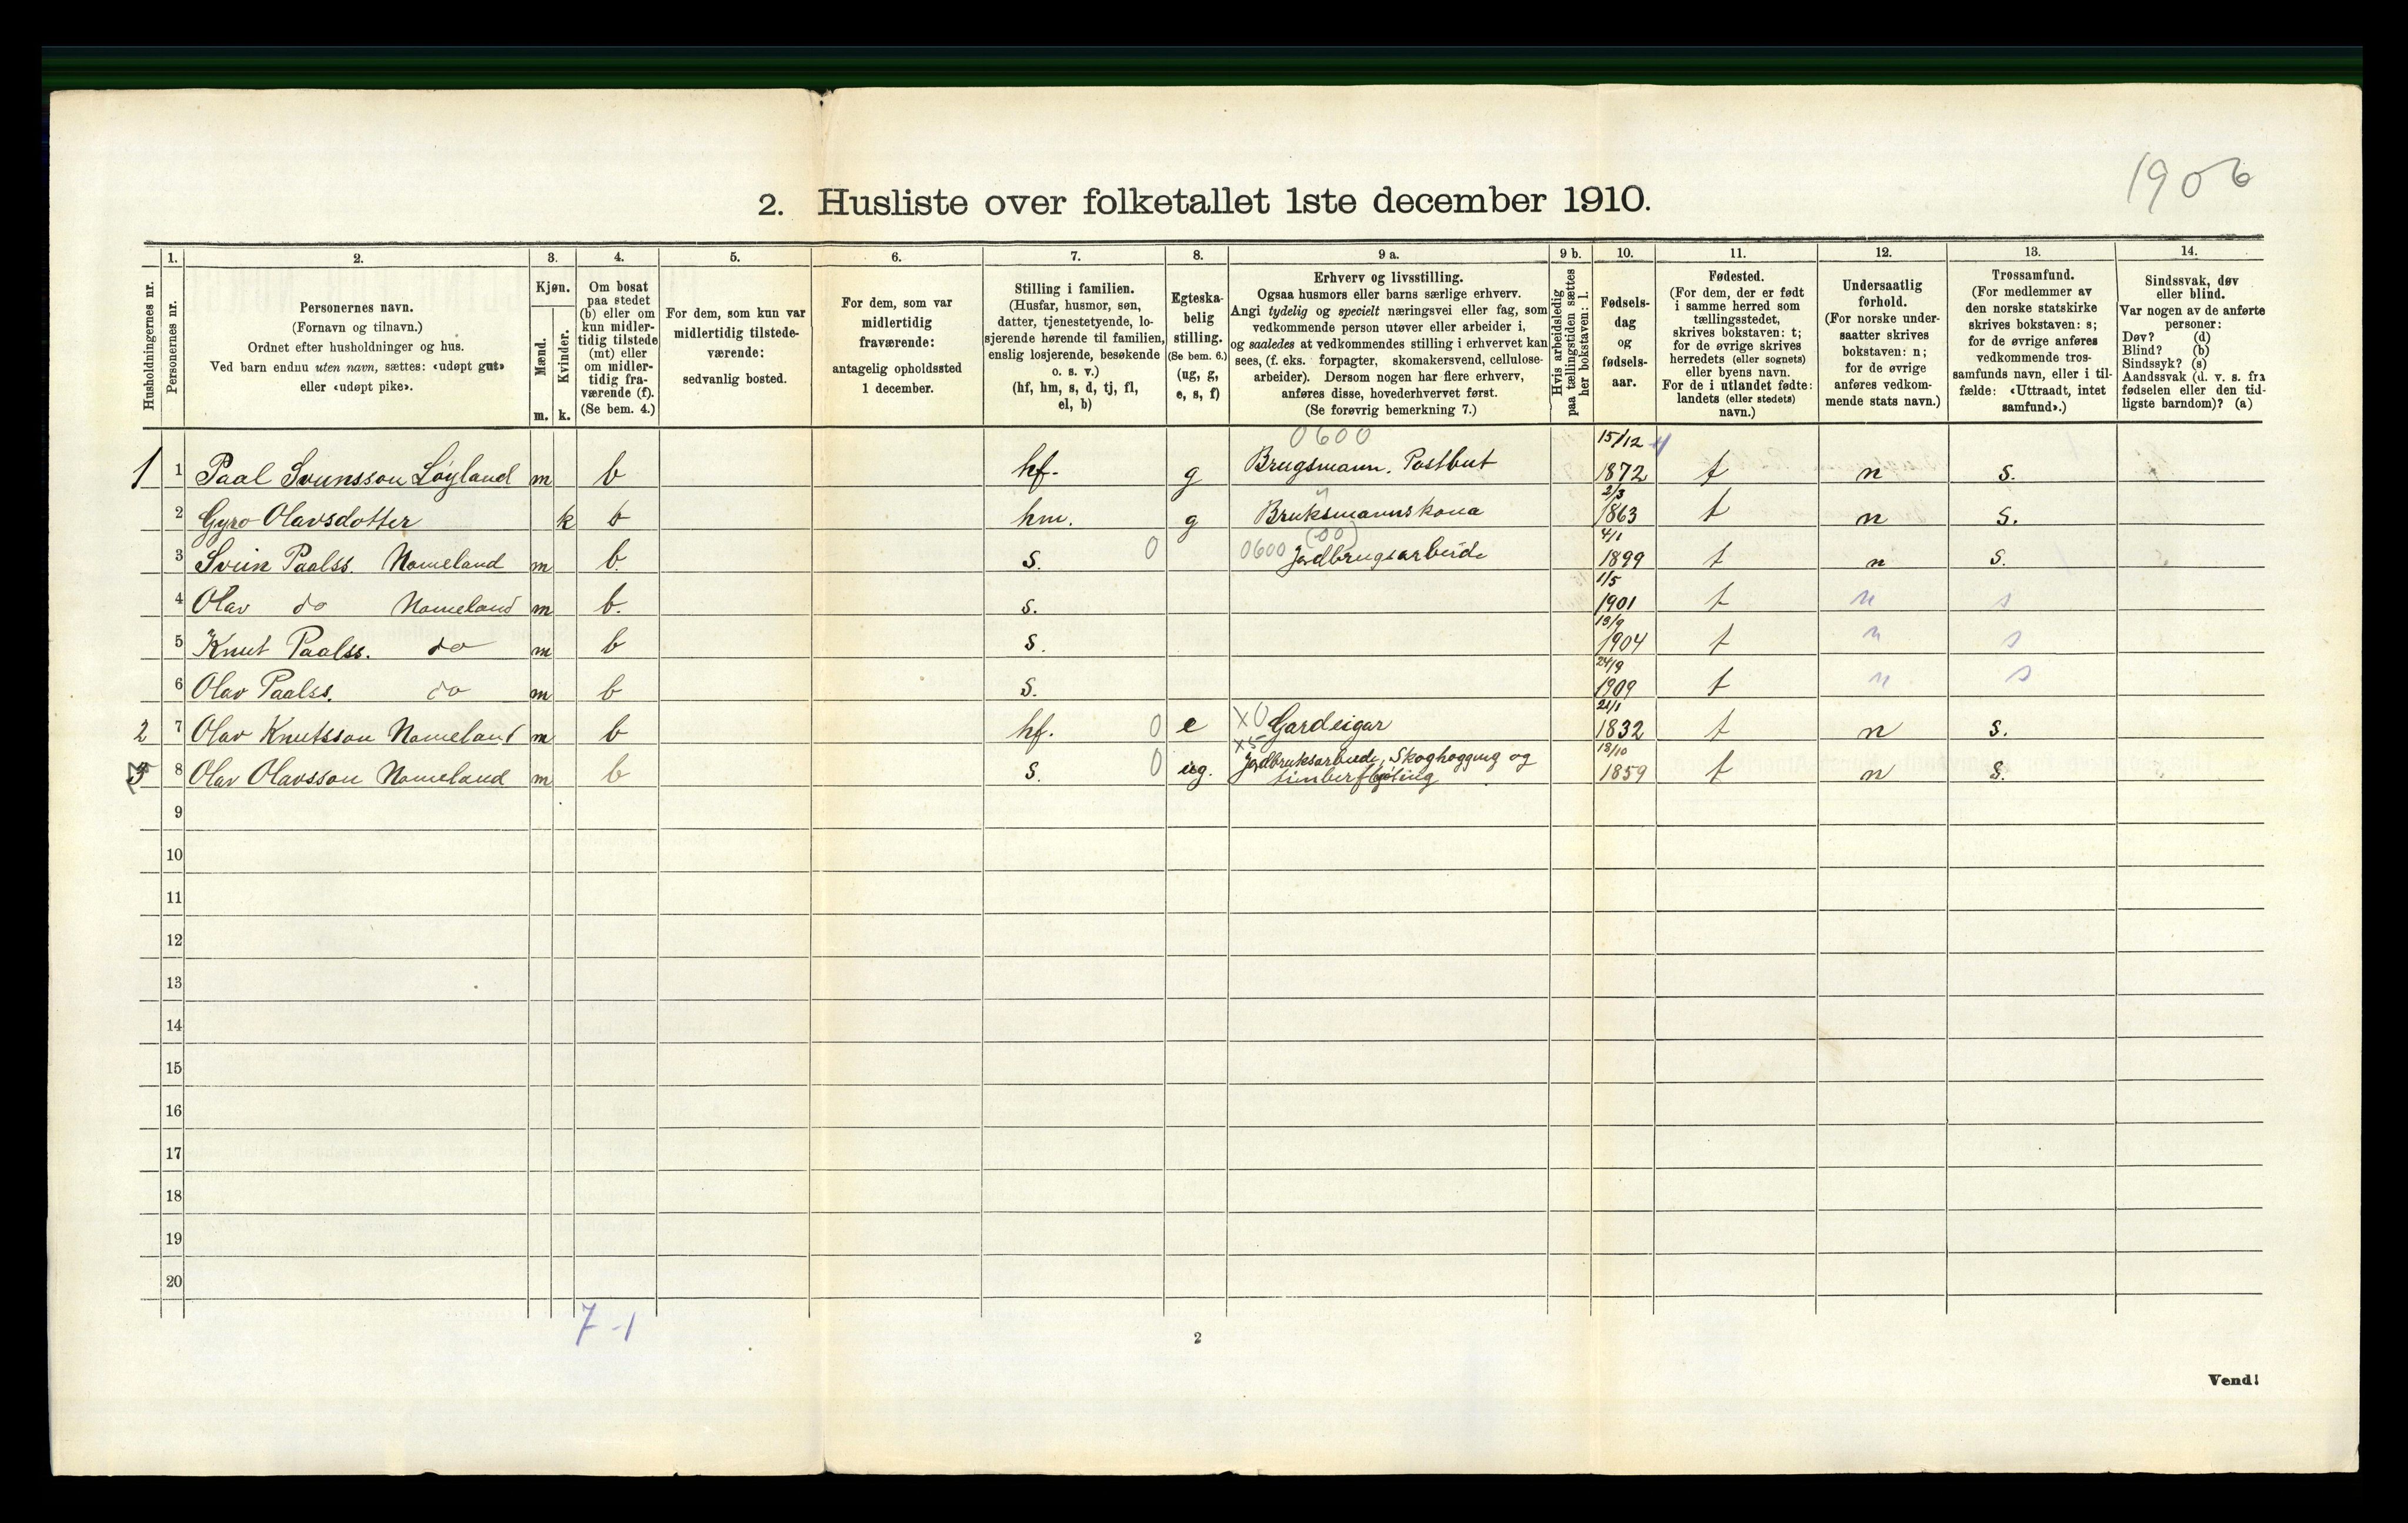 1906
2. Husliste over folketallet 1ste december 1910.
Husholdningernes nr.
1.
Personernes nr.
2.
Personernes navn.
(Fornavn og tilnavn.)
Ordnet efter husholdninger og hus.
Ved barn endnu uten navn, sættes: «udøpt gut»
eller «udøpt pike».
3.
Kjøn.
Mænd.
Kvinder.
m. k.
4.
Om bosat
paa stedet
(b) eller om
kun midler-
tidig tilstede
(mt) eller
om midler-
tidig fra-
værende (f).
(Se bem. 4.)
5.
For dem, som kun var
midlertidig tilstede-
værende:
sedvanlig bosted.
6.
For dem, som var
midlertidig
fraværende:
antagelig opholdssted
1 december.
7.
Stilling i familien.
(Husfar, husmor, søn,
datter, tjenestetyende, lo-
sjerende hørende til familien,
enslig losjerende, besøkende
o. s. v.)
(hf, hm, s, d, tj, fl,
el, b)
8.
Egteska-
belig
stilling.
(Se bem. 6.)
(ug, g,
e, s, f)
9 a.
Erhverv og livsstilling.
Ogsaa husmors eller barns særlige erhverv.
Angi tydelig og specielt næringsvei eller fag, som
vedkommende person utøver eller arbeider i,
og saaledes at vedkommendes stilling i erhvervet kan
sees, (f. eks. forpagter, skomakersvend, cellulose-
arbeider). Dersom nogen har flere erhverv,
anføres disse, hovederhvervet først.
(Se forøvrig bemerkning 7.)
9 b.
Hvis arbeidsledig
paa tællingstiden sættes
her bokstaven: l.
10.
Fødsels-
dag
og
fødsels-
aar.
11.
Fødested.
(For dem, der er født
i samme herred som
tællingsstedet,
skrives bokstaven: t;
for de øvrige skrives
herredets (eller sognets)
eller byens navn.
For de i utlandet fødte:
landets (eller stedets)
navn.)
12.
Undersaatlig
forhold.
(For norske under-
saatter skrives
bokstaven: n;
for de øvrige
anføres vedkom-
mende stats navn.)
13.
Trossamfund.
(For medlemmer av
den norske statskirke
skrives bokstaven: s;
for de øvrige anføres
vedkommende tros-
samfunds navn, eller i til-
fælde: «Uttraadt, intet
samfund».)
14.
Sindssvak, døv
eller blind.
Var nogen av de anførte
personer:
Døv? (d)
Blind? (b)
Sindssyk? (s)
Aandssvak (d. v. s. fra
fødselen eller den tid-
ligste barndom)? (a)
0600 15/12
1 1 Paal Sveinsson Løyland m b hf. g Brugsmann. Postbut 1872 t n s.
2/3
2 Gyro Olavsdotter k b hm. g Bruksmannskona 1863 t n s.
(00) 4/1
3 Svein Paalss. Nomeland m b. s. 0 0600 Jordbrugsarbeide 1899 t n s.
1/5
4 Olav do Nomeland m b. s. 1901 t n s
13/9
5 Knut Paalss. do m b s. 1904 t n s
24/9
6 Olav Paalss. do m b s. 1909 t n s
21/1
2 7 Olav Knutsson Nomeland m b hf. 0 e X0 Gardeigar 1832 t n s.
X5 13/10
3 8 Olav Olavsson Nomeland m b s. 0 ug. Jordbruksarbeide, Skoghogging og
timberfløting 1859 t n s.
9
10
11
12
13
14
15
16
17
18
19
20
7-1
2
Vend!